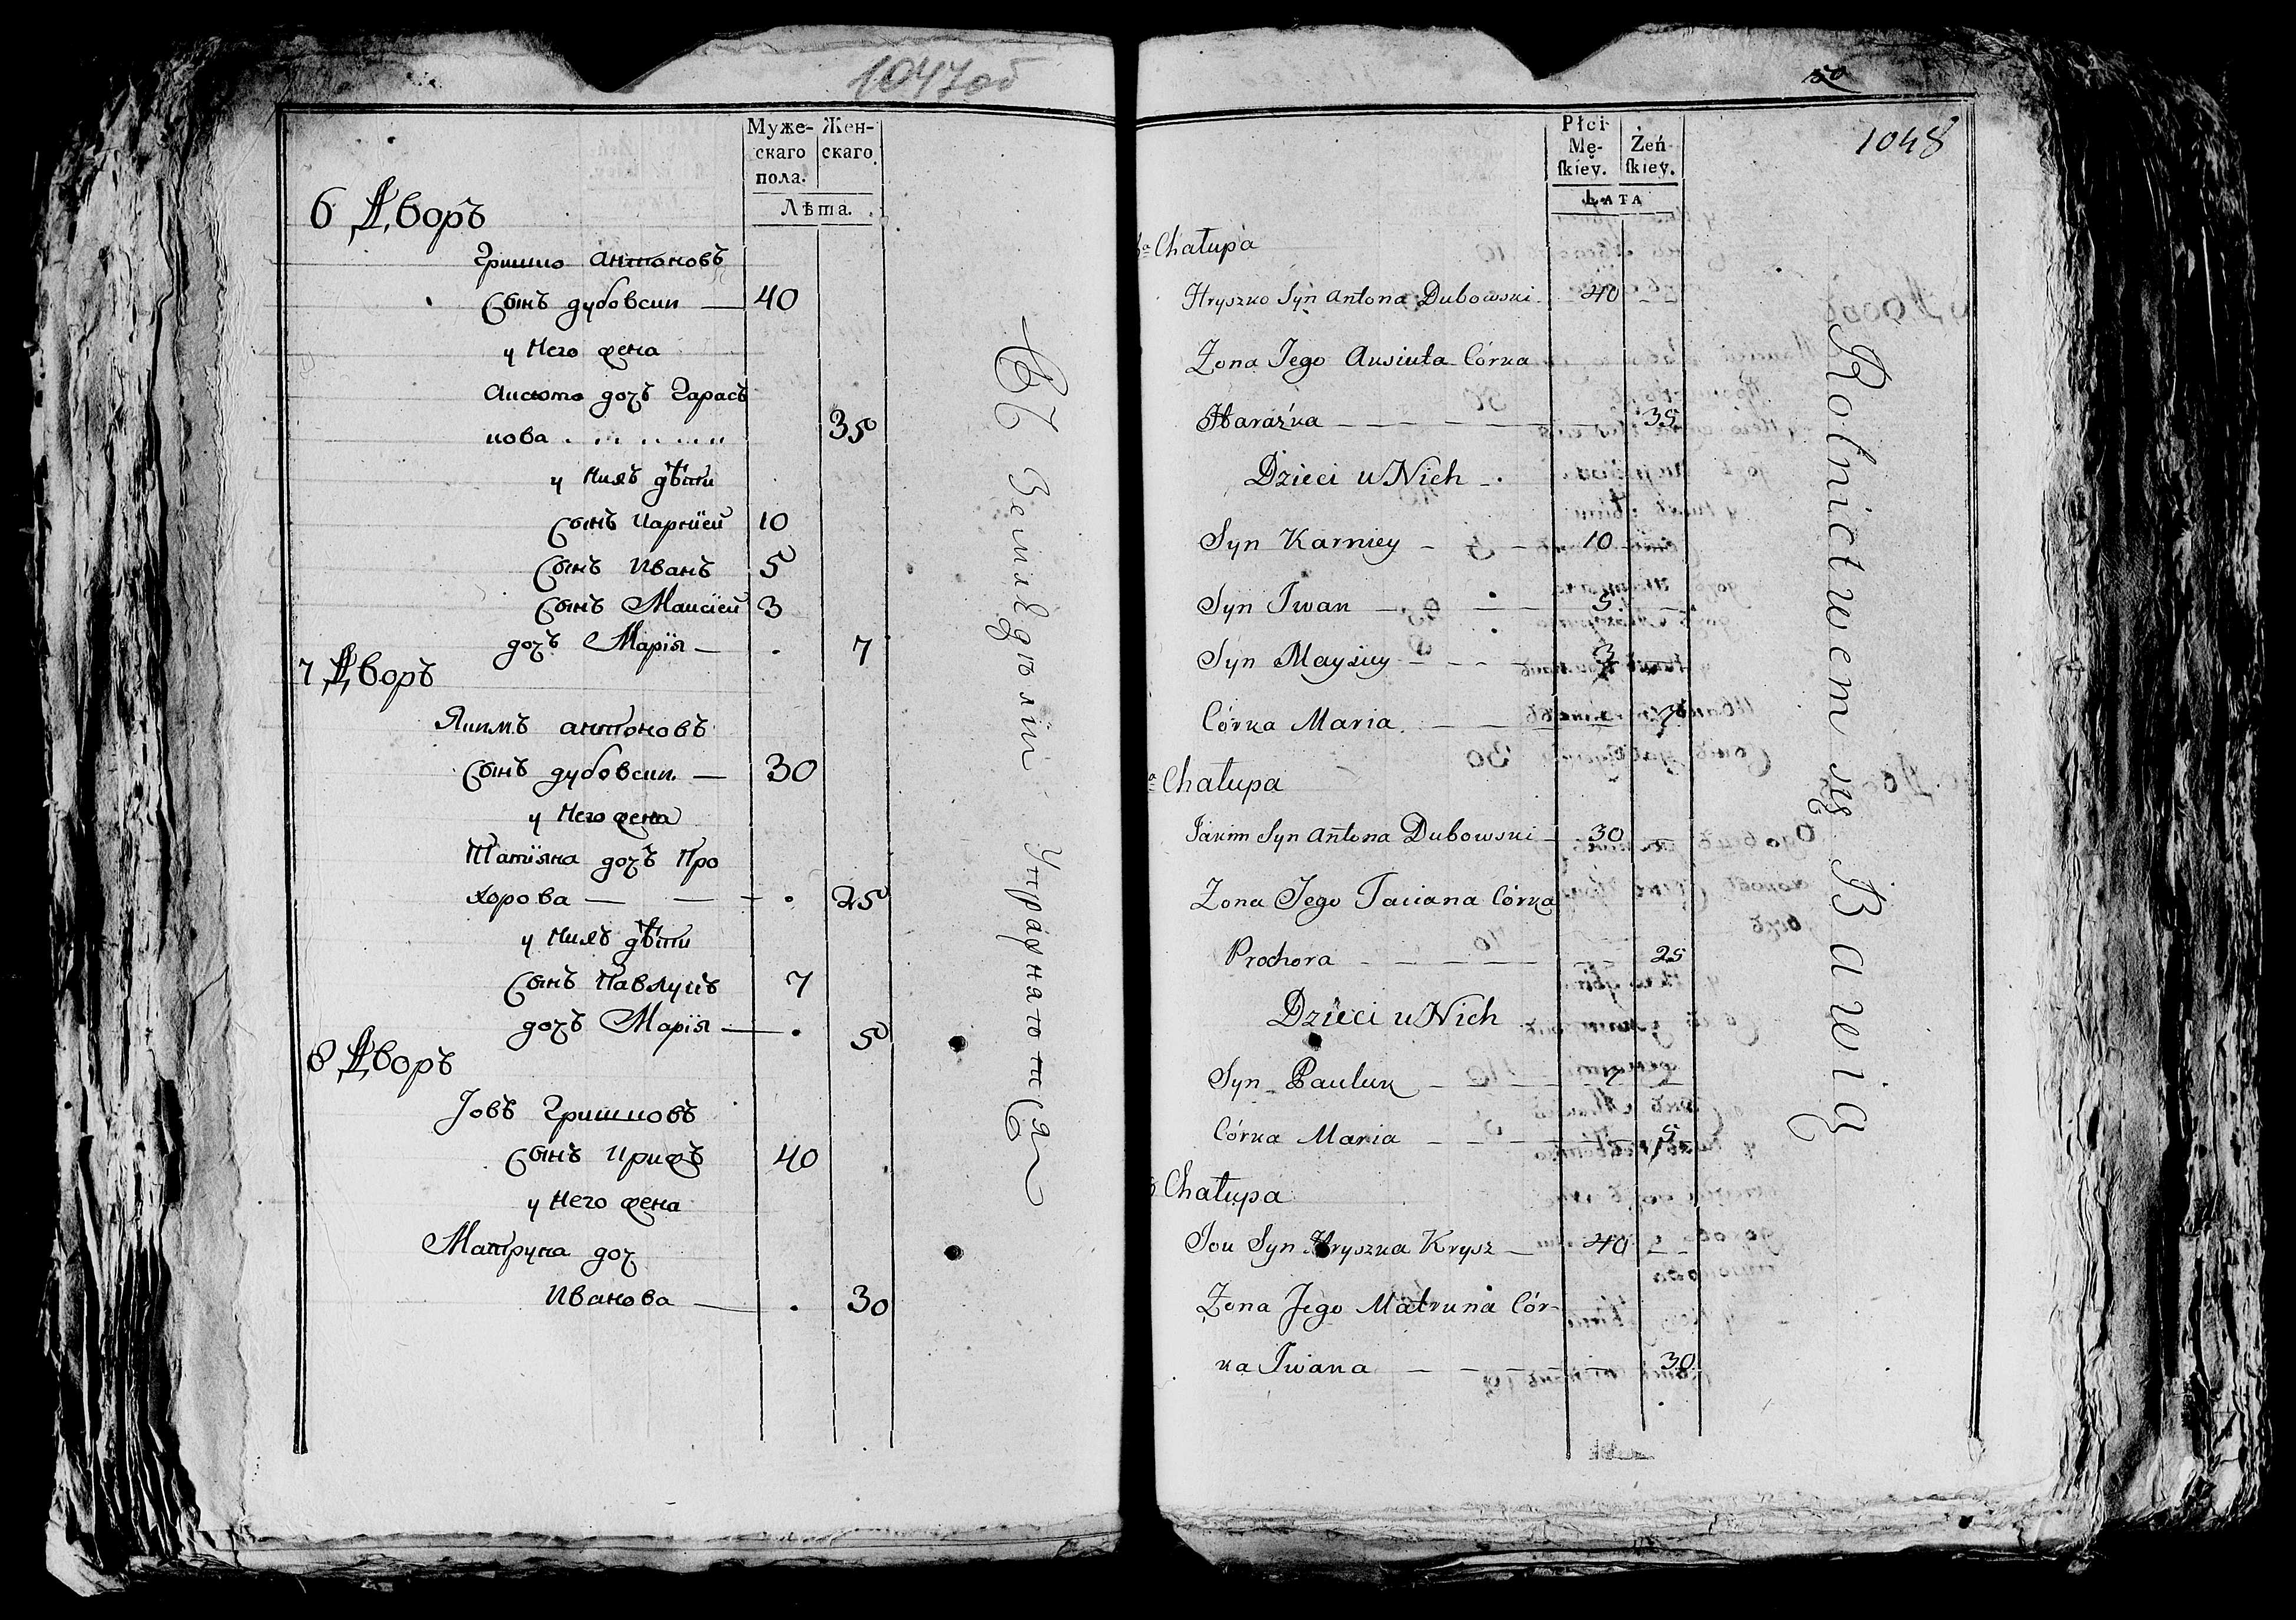 1047об
Муже- Жен-
скаго скаго.
пола.
Лѣта.
6 Дворъ
Гришко антоновъ
Сынъ дубовски — 40
у Него жена
Аксюта дочъ Гарась
кова . . . . . 35
у Нихъ дѣти
Сынъ Карнїей 10
Сынъ Иванъ 5
Сынъ Маисїей 3
дочъ Марїя — . 7
7 Дворъ
Якимъ антоновъ
Сынъ дубовски. — 30
у Него жена
Татїяна дочъ Про
хорова — — . 25
у Нихъ дѣти
Сынъ Павлукъ 7
дочъ Марїя — . 5
8 Дворъ
Іовъ Гришковъ
Сынъ Крижъ 40
у Него жена
Матруна доч
Иванова — . 30
Въ Земледѣлїи Упражняются
50
1048
Płci
Mę- Żeń-
skiey. skiey.
LATA
Chałupa
Hryszko Syn Antona Dubowski 40 —
Zona Jego Auksiuta Córka
Haraźka — — — 35
Dzieci u Nich
Syn Karniey — 10
Syn Iwan — — 5 —
Syn Mayziey — — — 3
Córka Maria — — — 7
Chałupa
Jakim Syn Antona Dubowski — 30 —
Zona Jego Taciana Córka
Prochora — — — 25
Dzieci u Nich
Syn Pauluk — — 7 —
Córka Maria — — — 5
Chałupa
Jou Syn Hryszka Krysz — 40 — —
Zona Jego Matruna Cór-
ka Iwana — — — 30
Rolnictwem się Bawią